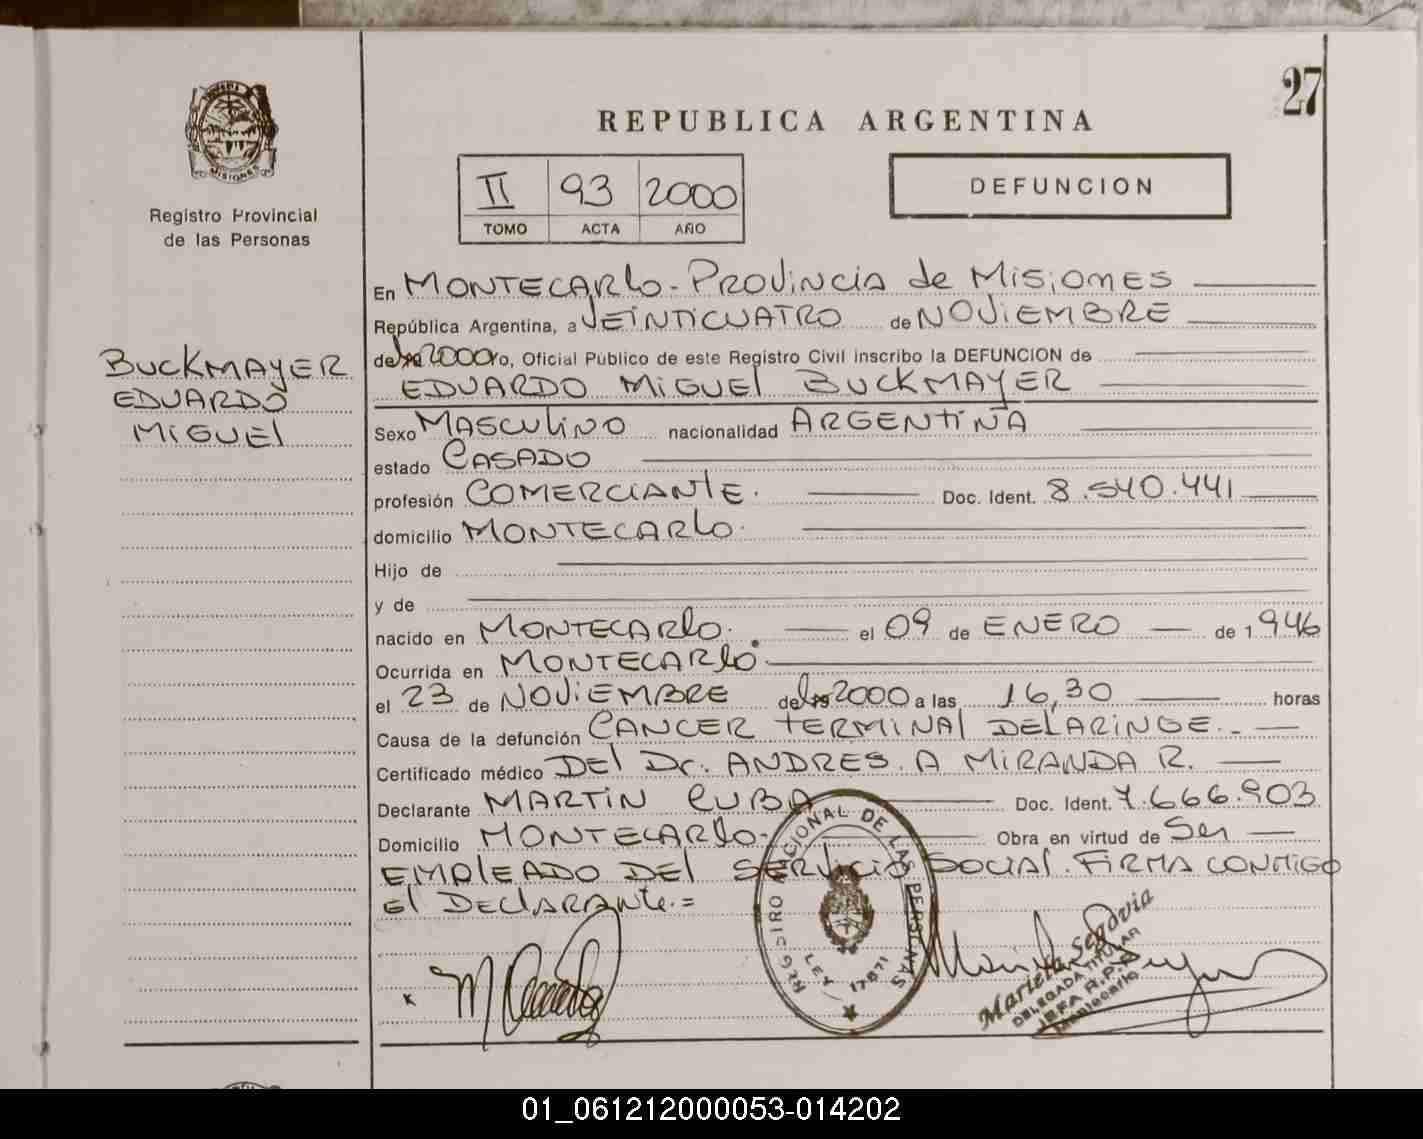 27
REPUBLICA ARGENTINA
II 93 2000
TOMO ACTA AÑO
DEFUNCION
MISIONES
Registro Provincial
de las Personas
BUCKMAYER
EDUARDO
MIGUEL
En MONTECARLO - PROVINCIA de MISIONES
República Argentina, a VEINTICUATRO de NOVIEMBRE
del 2000 yo, Oficial Público de este Registro Civil inscribo la DEFUNCION de
EDUARDO MIGUEL BUCKMAYER
Sexo MASCULINO nacionalidad ARGENTINA
estado CASADO
profesión COMERCIANTE. Doc. Ident. 8.540.441
domicilio MONTECARLO.
Hijo de
y de
nacido en MONTECARLO. el 09 de ENERO de 1.946
Ocurrida en MONTECARLO.
el 23 de NOVIEMBRE del 2000 a las 16,30 horas
Causa de la defunción CANCER TERMINAL DE LARINGE.-
Certificado médico DEL Dr. ANDRES. A MIRANDA R.
Declarante MARTIN CUBA Doc. Ident. 7.666.903
Domicilio MONTECARLO- Obra en virtud de Ser
EMPLEADO DEL SERVICIO SOCIAL. FIRMA CONMIGO
El DECLARANTE.=
REGISTRO NACIONAL DE LAS PERSONAS
LEY 17671
Segovia
DELEGADA TITULAR
Montecarlo
01_061212000053-014202